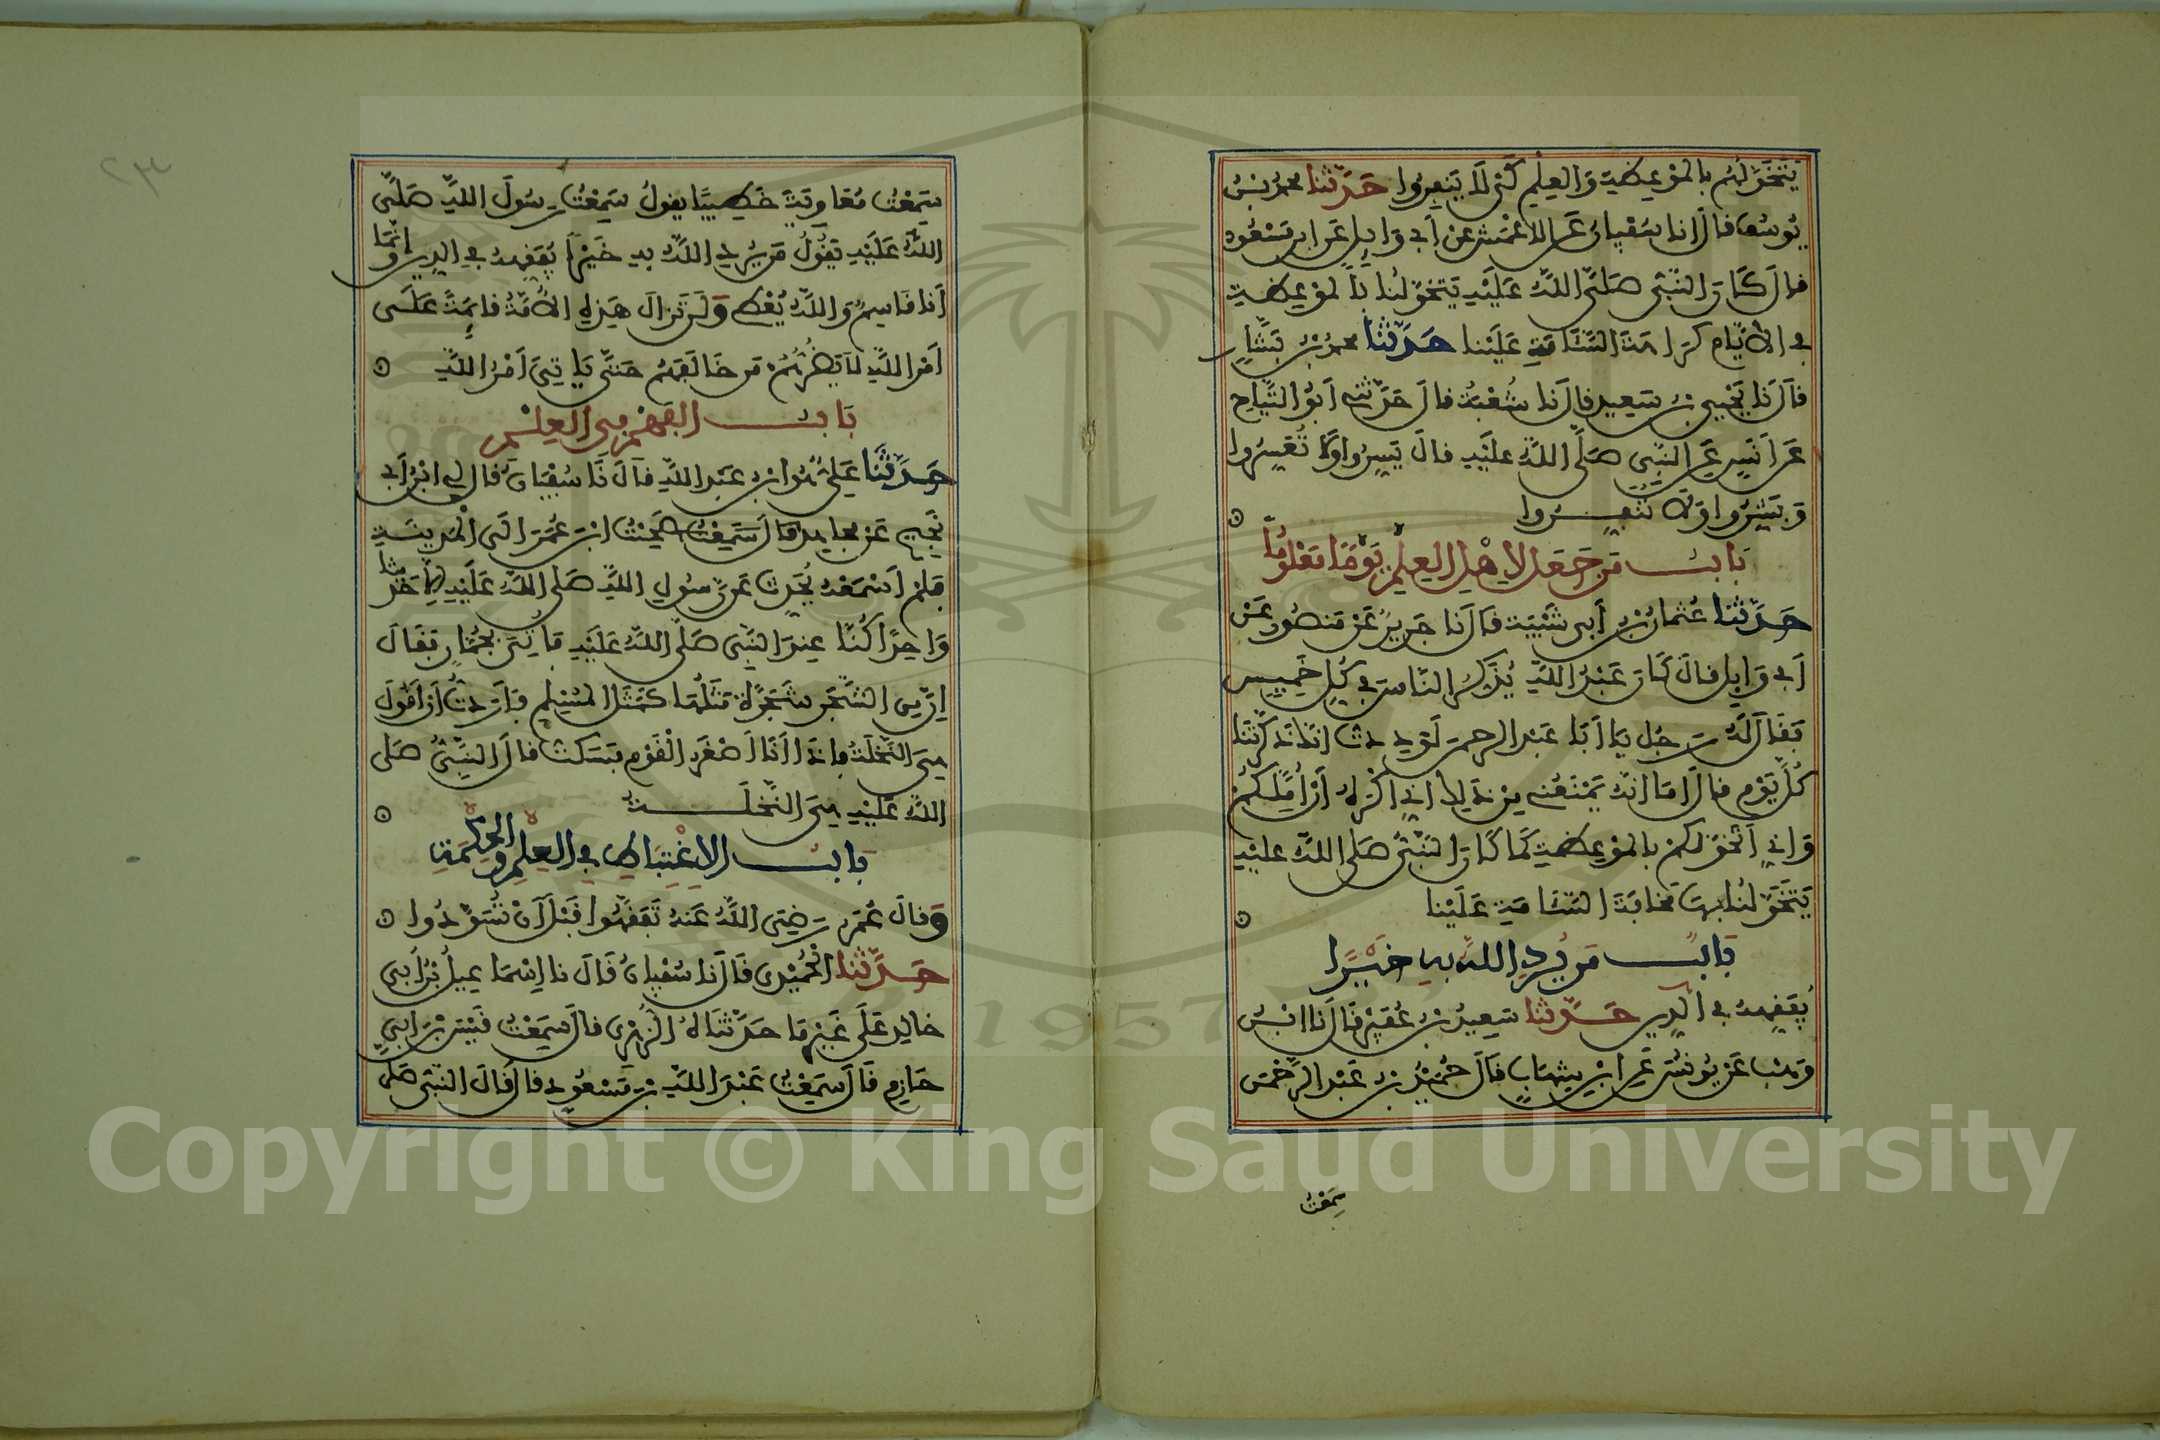 يَتَخَوَّلُهُم بالموْعِظةِ وَالعِلْمِ كَيْ لَا يَنفِرُوا حَدَّثنا محمد بْنُ
يُوسُف قال انا سُفْيان عَن الاعْمَش عن أبي وَايِل عَن ابن مَسْعُود
قال كَانَ النَّبي صَلَّى اللَّه عَلَيْهِ يَتَخوَّلُنا بالموْعِظةِ
في الأيّام كراهَةَ السَّئامَةِ عَلَيْنا حَدَّثَنا محمد بن بَشَّار
قالَ نا يَحْيى بن سَعِيد قال نا شُعْبَة قال حَدَّثني أبُو التَّيَّاح
عَن أنَس عَنِ النَّبِي صَلَّى اللَّه عليْهِ قالَ يَسِّرُوا وَلا تُعَسِّرُوا
وَبَشِّرُوا وَلَا تنفِّرُوا
بَاب مَن جَعَل لأهْلِ العِلْم يَوْمًا مَعْلُومًا
حَدَّثنا عُثمان بن أبي شَيْبَة قال نا جَرِيرٌ عَنْ مَنصُور عَنْ
أبي وَايِل قال كان عَبْدُ اللَّهِ يُذَكِّر النَّاسَ في كُل خَمِيس
فقال لَهُ رَجُل يَا أبَا عَبْد الرحمن لَوَدِدتُ انّك ذكَّرْتنَا
كُلَّ يَوْم قال أمَا انّه يَمْنَعُني مِن ذلِك أني أكْرَهُ أنْ أُمِلَّكُمْ
وَاني أتَخوّلكُمْ بالموْعِظةِ كَمَا كان النَّبيُّ صَلى اللَّه عليْهِ
يَتَخَوَّلنا بهَا مَخافَةَ السَّئامَةِ عَلَيْنا
بَاب مَن يُرِدِ اللَّهُ بِهِ خَيْرًا
يُفَقِّههُ في الدِّين حَدَّثنا سَعِيدُ بن عُفَيْر قال نا ابْنُ
وَهْب عَن يُونُسَ عَنِ ابْن شِهَابٍ قالَ حُمَيْدُ بن عَبْد الرَّحْمن
سَمِعْتُ
سَمِعْتُ مُعَاوِيَةَ خَطِيبًا يقولُ سَمِعْتُ رَسُولَ اللَّهِ صَلَّى
اللَّهُ عَلَيْهِ يَقُولُ مَن يُرِدِ اللَّهُ بِهِ خَيْرًا يُفَقِّههُ في الدِّينِ وَإِنَّمَا
أنا قَاسِمٌ وَاللَّه يُعْطِي وَلَن تزالَ هَذِهِ الأُمَّةُ قائِمَةً عَلَى
أمْرِ اللَّهِ لا يَضُرُّهُمْ مَن خَالَفَهُمْ حَتَّى يَاتِيَ أمْرُ اللَّهِ
بَاب الفَهْمِ في العِلْمِ
حَدَّثَنا عَلِيٌّ هُوَ ابن عَبْد اللَّهِ قالَ نَا سُفْيَان قال لي ابْنُ أبي
نَجِيح عَنْ مجاهِد قال سَمِعْتُ صَحِبْتُ ابْنَ عُمَرَ إلَى الْمَدِينَةِ
فلمْ أسْمَعْهُ يُحَدِّث عَن رَسُولِ اللهِ صَلى اللَّهُ عَلَيْهِ إلا حَدِيثا
وَاحِدًا كُنَّا عِندَ النَّبي صَلَّى اللَّهُ عَلَيْهِ فأُتِيَ بجُمَّارٍ فقَالَ
إنّ مِنَ الشَّجَرِ شَجَرَةً مَثَلُهَا كَمَثَلِ الْمُسْلِمِ فأرَدتُ أن أقولَ
هِيَ النَّخْلَةُ فإذا أنَا أصْغَرُ الْقَوْمِ فسَكَتُّ قال النَّبِيُّ صَلى
اللَّه عَلَيْهِ هِيَ النَّخْلَةُ
بَاب الإغْتِبَاطِ في العِلْمِ وَالْحِكْمَةِ
وَقالَ عُمَرُ رَضِيَ اللَّهُ عَنهُ تَفَقَّهُوا قَبْلَ أنْ تُسَوَّدُوا
حَدَّثنا الْحُمَيْدِي قال نا سُفْيان قَالَ نا إسْمَاعِيلُ بْنُ أبي
خالِد عَلَى غَيْرِ مَا حَدَّثنَاهُ الزُّهْرِي قال سَمِعْتُ قَيْسَ بْنَ أبي
حَازِم قَالَ سَمِعْتُ عَبْدَ اللَّهِ بن مَسْعُودٍ قال قالَ النَّبي صَلى
٢٣
Copyright © King Saud University
1957